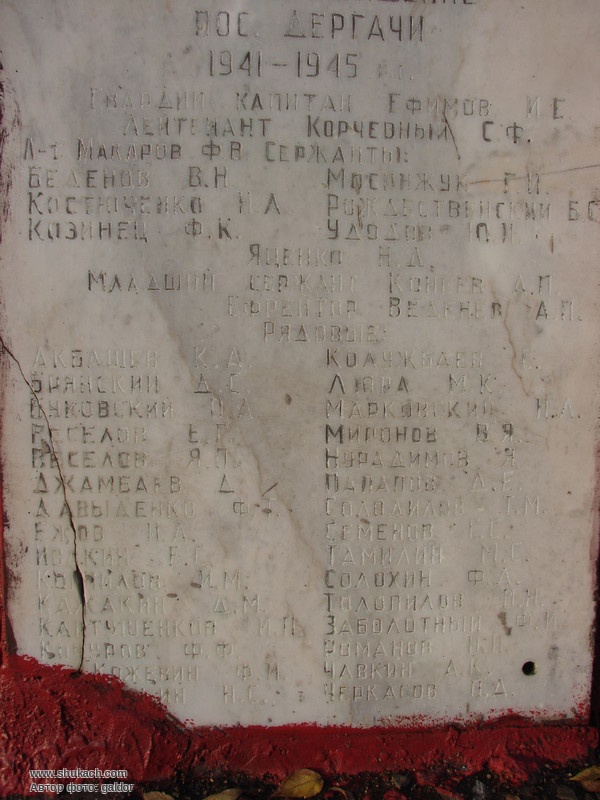 ПОС. ДЕРГАЧИ
1941-1945 г.г.
ГВАРДИИ КАПИТАН ЕФИМОВ И.Е.
ЛЕЙТЕНАНТ КОРЧЕВНЫЙ С.Ф.
Л-т МАКАРОВ Ф.В. СЕРЖАНТЫ:
БЕДЕНОВ В.Н. МОСИНЖУК Г.И.
КОСТЮЧЕНКО И.А. РОЖДЕСТВЕНСКИЙ Б.С.
КОЗИНЕЦ Ф.К. УДОДОВ Ю.Н.
ЯЦЕНКО Н.Д.
МЛАДШИЙ СЕРЖАНТ А.П.
ЕФРЕЙТОР ВЕДЕНЕВ А.П.
РЯДОВЫЕ:
АКБАШЕВ К.А. К.
БРЯНСКИЙ Д.С. ЛЮРА М.К.
П.А. МАРКОВСКИЙ И.А.
ВЕСЕЛОВ Е.Г. МИРОНОВ В.Я.
ВЕСЕЛОВ Я.П. НУРАДИМОВ Я.
ДЖАМБАЕВ Д. Д.Е.
ДАВЫДЕНКО Ф. Г.М.
ЕЖОВ И.А. СЕМЕНОВ
ИВАКИН Е.С. ТАМИЛИН М.С.
И.М. СОЛОХИН Ф.А.
КАЖАКИН Д.М. ТОЛОПИЛОВ П.Н.
КАРТУШЕНКОВ И.П. ЗАБОЛОТНЫЙ Ф.И.
Ф.Ф. РОМАНОВ И.И.
КОЖЕВИН Ф.М. ЧАВКИН А.К.
Н.С. ЧЕРКАСОВ В.Д.
www.shukach.com
Автор фото: galdor